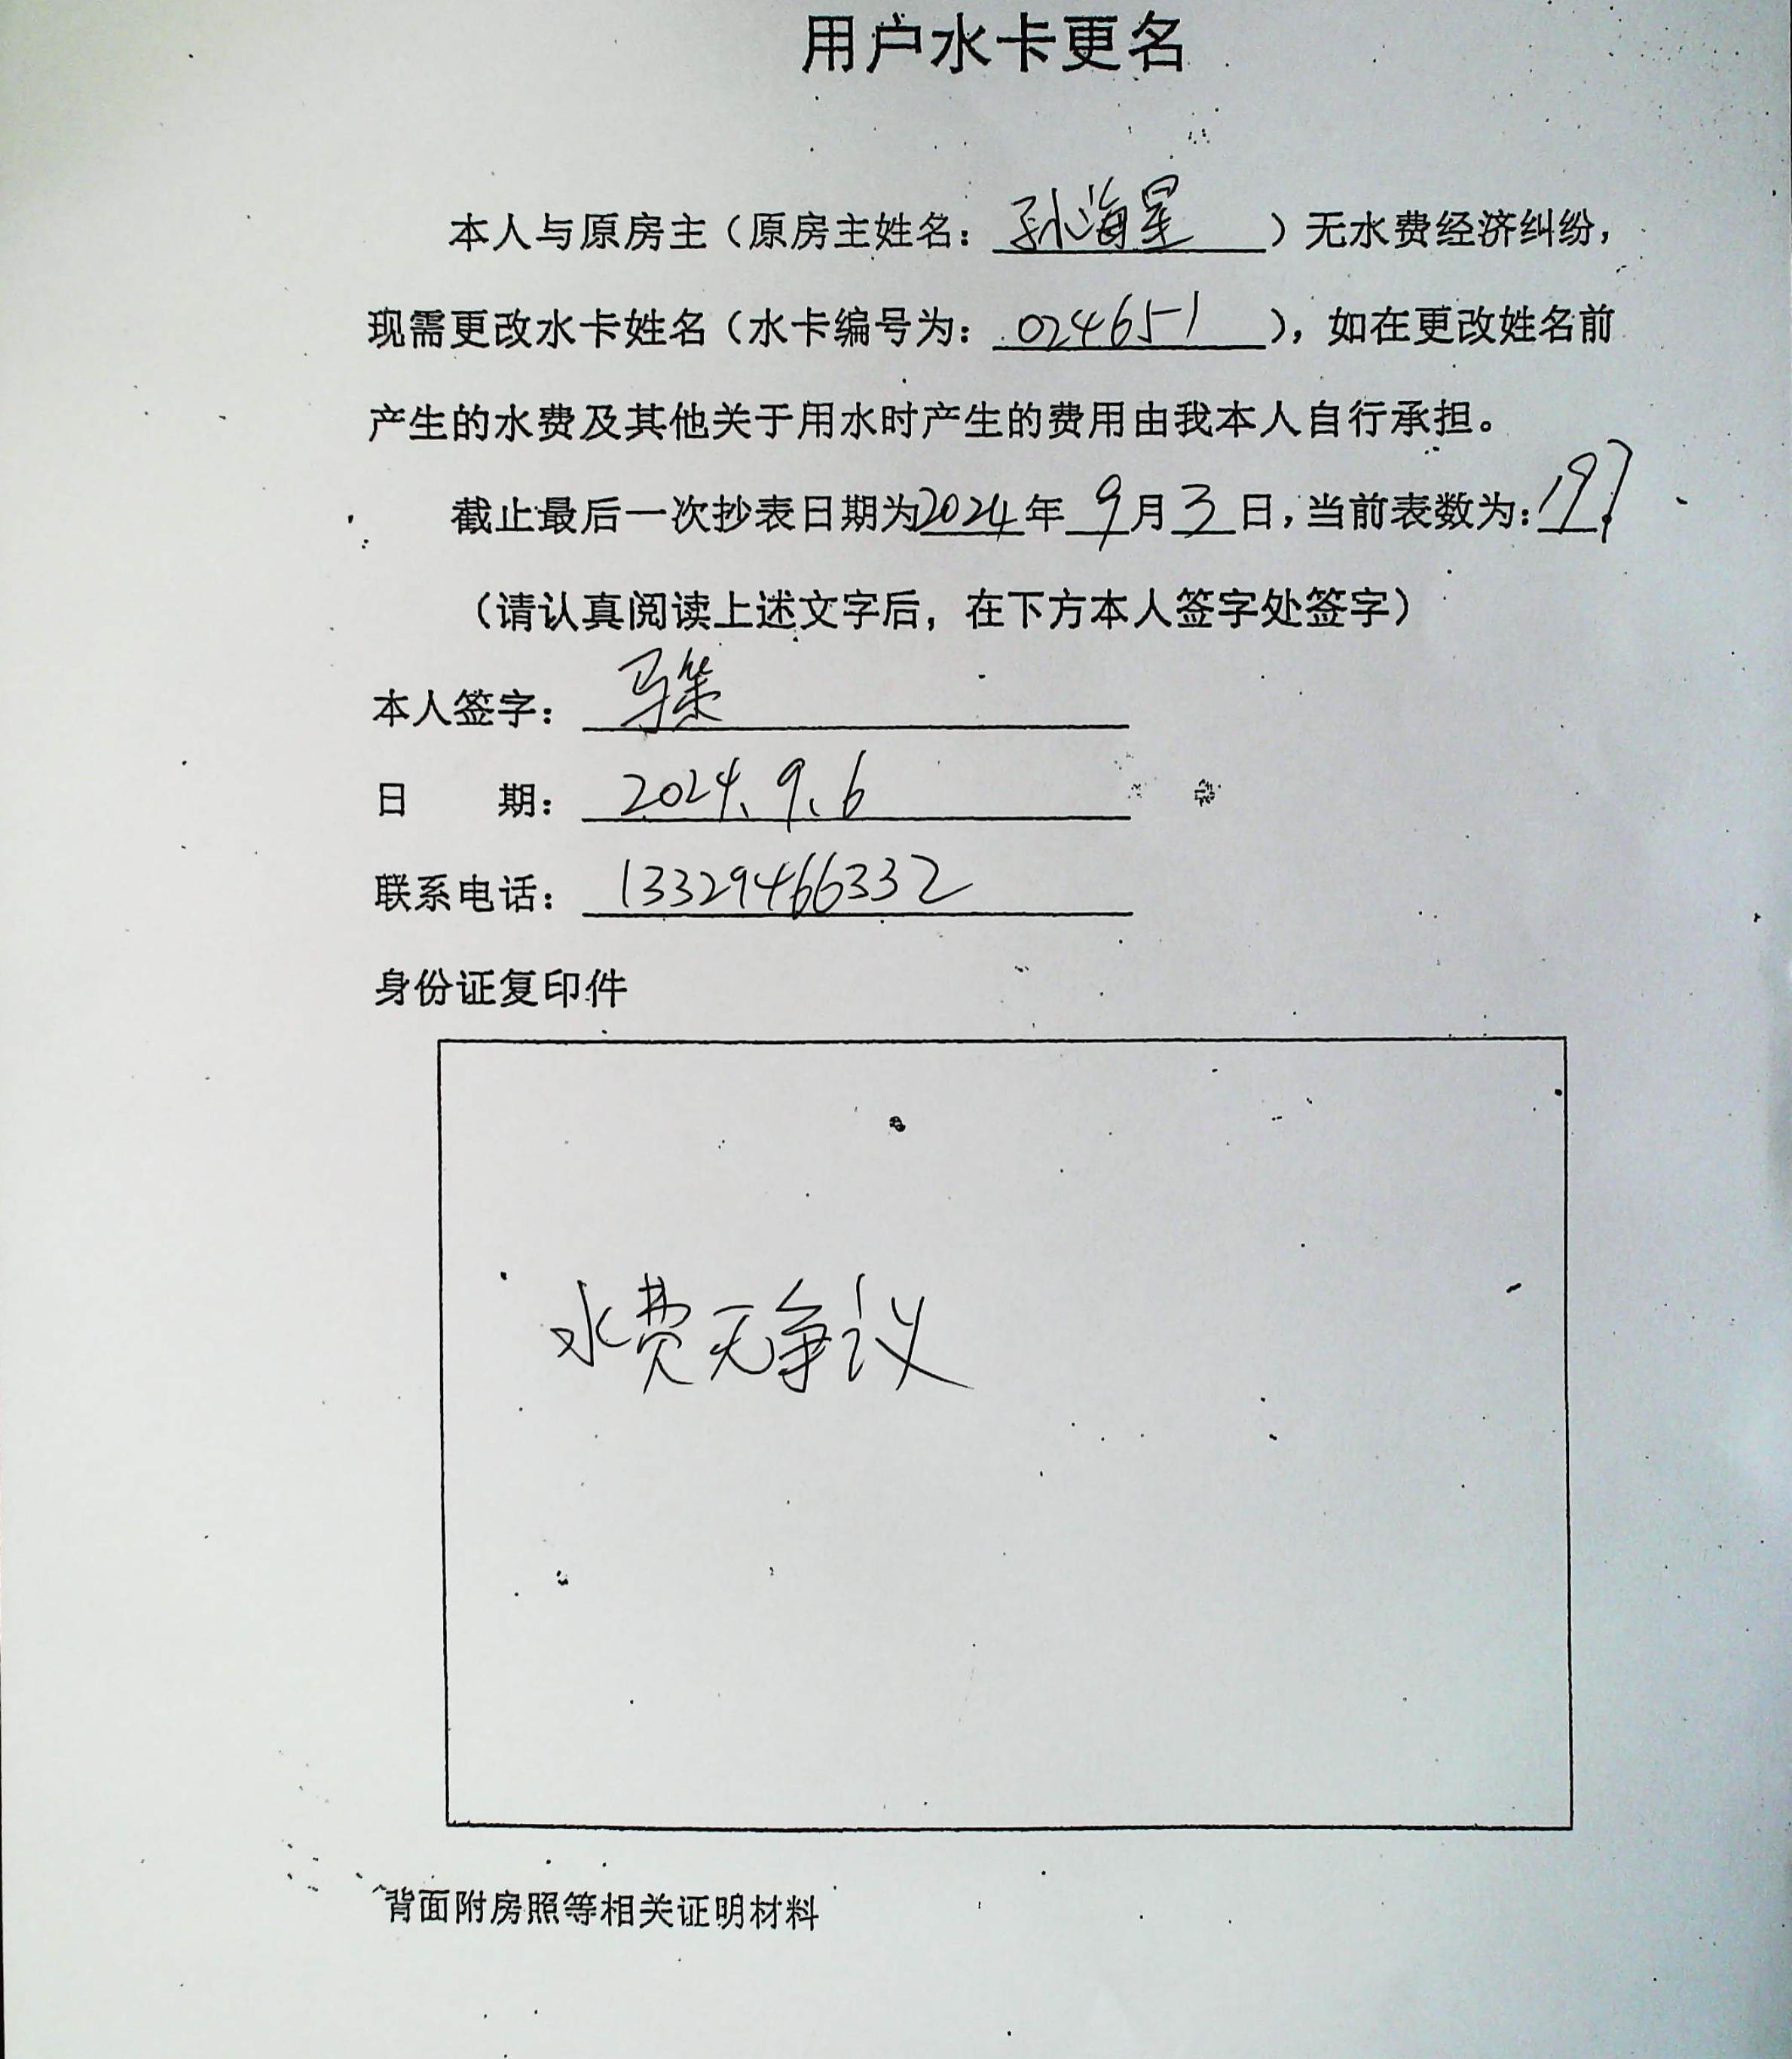 用户水卡更名
本人与原房主（原房主姓名：孙海星）无水费经济纠纷，
现需更改水卡姓名（水卡编号为：024651），如在更改姓名前
产生的水费及其他关于用水时产生的费用由我本人自行承担。
截止最后一次抄表日期为2024年9月3日，当前表数为：197
（请认真阅读上述文字后，在下方本人签字处签字）
本人签字：马策
日 期：2024、9、6
联系电话：13329466332
身份证复印件
水费无争议
背面附房照等相关证明材料